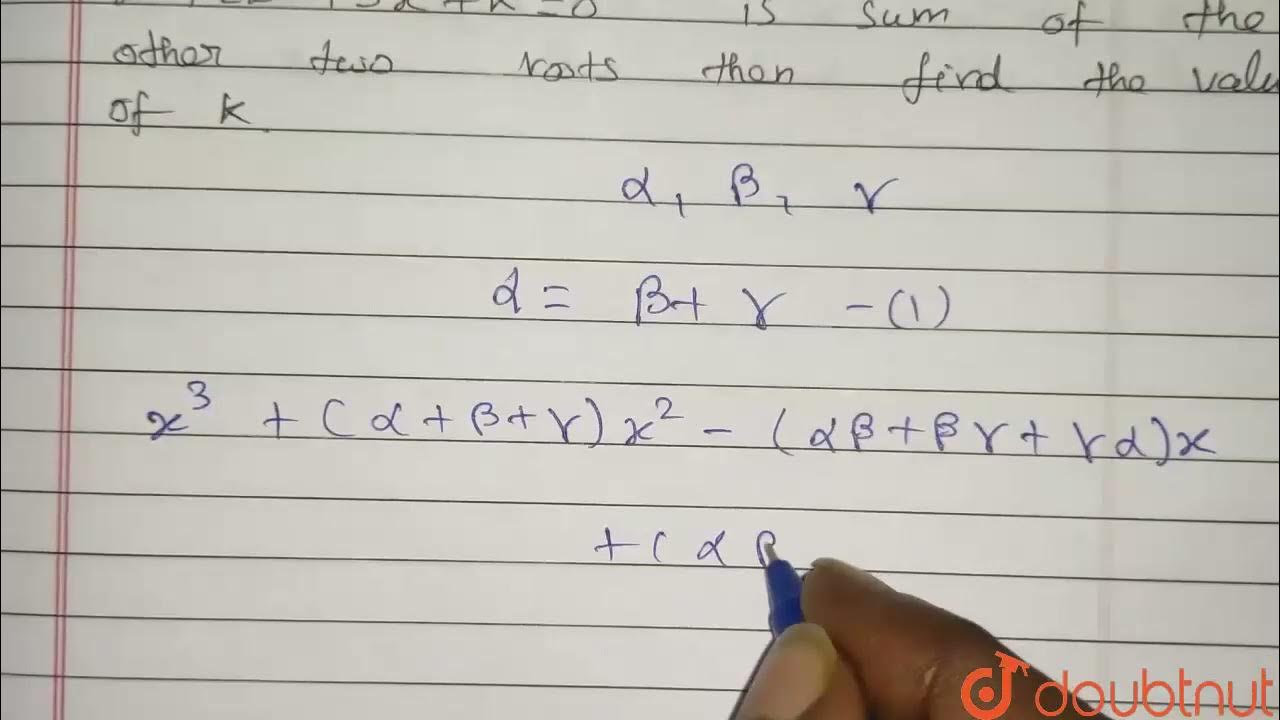 = 0 is sum of the
other two roots then find the valu
of k
α, β, γ
α = β + γ - (1)
x³ + (α + β + γ) x² - (αβ + βγ + γα)x
+ ( α β
doubtnut